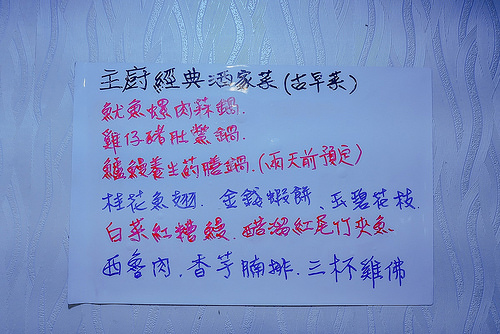 主廚經典酒家菜(古早菜)
魷魚螺肉蒜鍋.
雞仔豬肚鱉鍋.
鱸鰻養生藥膳鍋.(兩天前預定)
桂花魚翅. 金錢蝦餅、玉碧花枝.
白菜紅糟鰻. 醋溜紅尾竹夾魚
西魯肉. 香芋腩排. 三杯雞佛